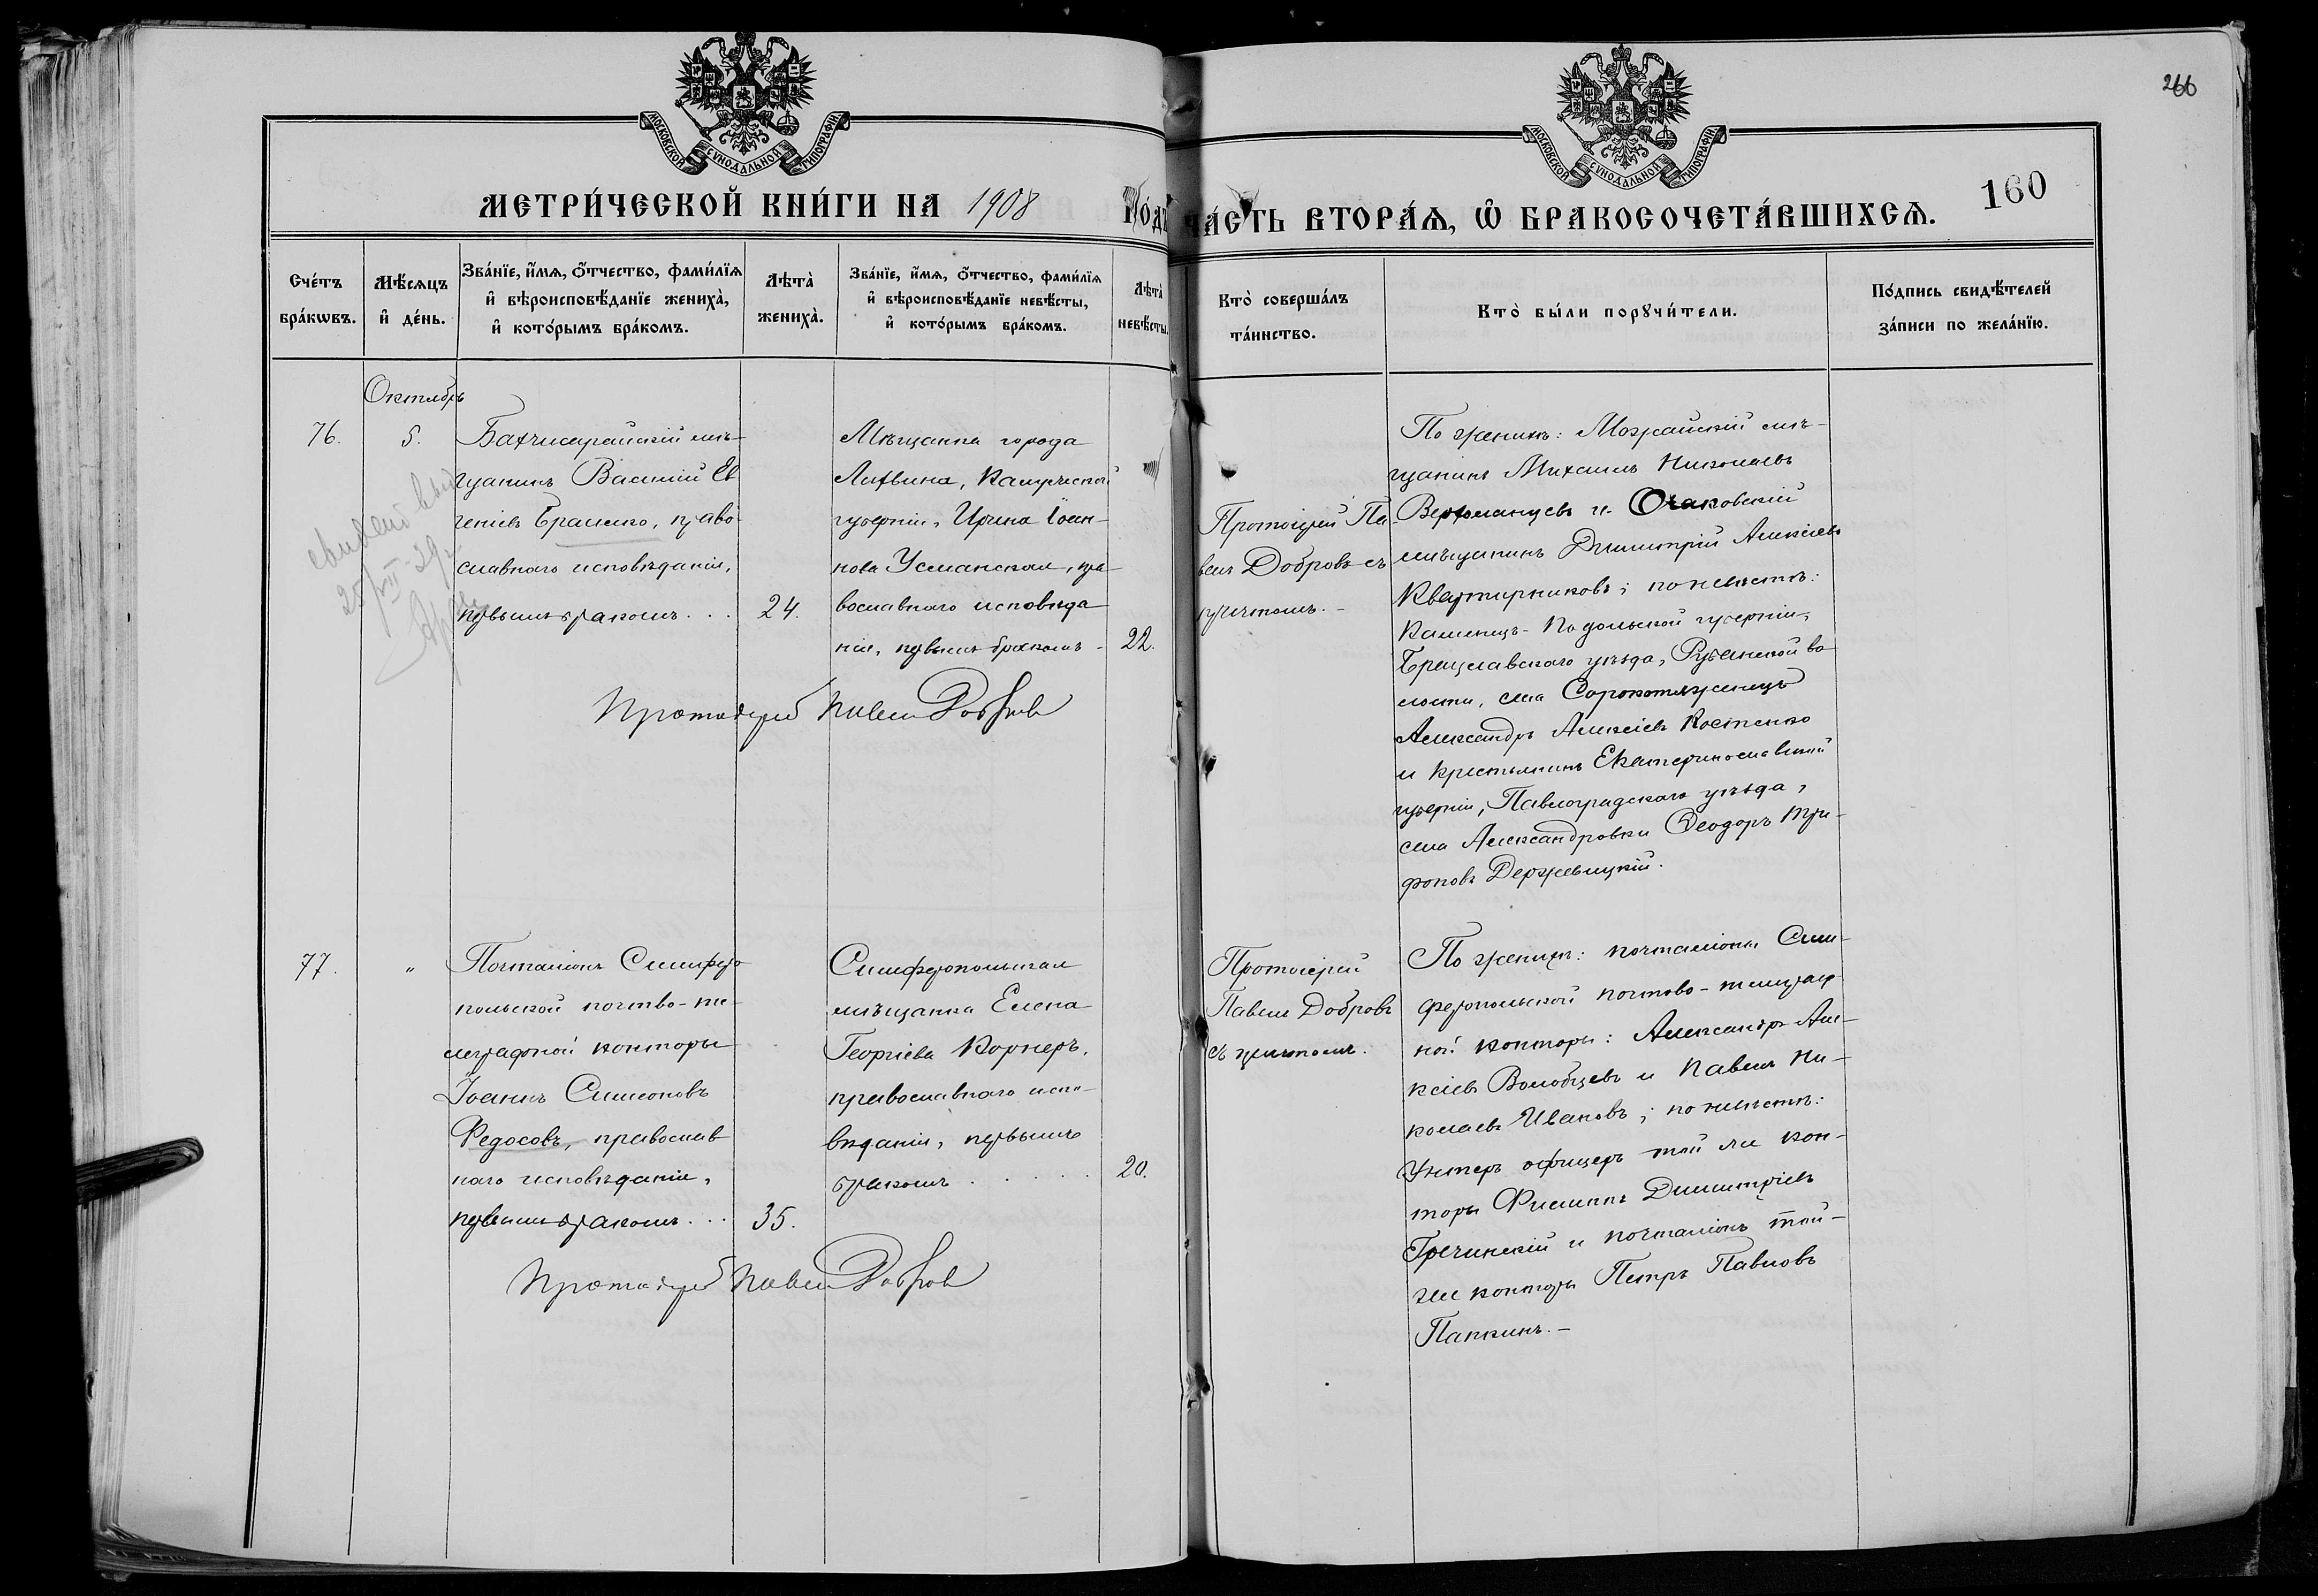 266
МОСКОВСКОЙ СѴНОДАЛЬНОЙ ТИПОГРАФІИ
МОСКОВСКОЙ СѴНОДАЛЬНОЙ ТИПОГРАФІИ
МЕТРИ́ЧЕСКОЙ КНИ́ГИ НА 1908 ГО́ДЪ
ЧА́СТЬ ВТОРА́Ѧ, Ѡ҆ БРАКОСОЧЕТА́ВШИХСѦ.
160
Сче́тъ
бра́кѡвъ.
Мѣ́сѧцъ
и҆ де́нь.
Зва́нїе, и҆́мѧ, ѻ҆́тчество, фами́лїѧ
и҆ вѣроисповѣ́данїе жениха̀,
и҆ кото́рымъ бра́комъ.
Лѣта̀
жениха̀.
Зва́нїе, и҆́мѧ, ѻ҆́тчество, фами́лїѧ
и҆ вѣроисповѣ́данїе невѣ́сты,
и҆ кото́рымъ бра́комъ.
Лѣта̀
невѣ́сты.
Кто̀ соверша́лъ
та́инство.
Кто̀ бы́ли порꙋчи́тели.
По́дпись свидѣ́телей
за́писи по жела́нїю.
Октябрь
76.
5.
Бахчисарайскій мѣ-
щанинъ Василій Ев
геніевъ Ерашко, право
славнаго исповѣданія,
первымъ бракомъ . . .
24.
Мѣщанка города
Лихвина, Калужской
губерніи, Ирина Іоан-
нова Усманская, пра-
вославнаго исповѣда
нія, первымъ бракомъ -
22.
Протоіерей Па-
велъ Добровъ съ
причтомъ. -
По женихѣ: Можайскій мѣ-
щанинъ Михаилъ Николаевъ
Верхоланцевъ и Очаковскій
мѣщанинъ Димитрій Алексіевъ
Квартирниковъ; по невѣстѣ:
Каменецъ-Подольской губерніи,
Брацлавскаго уѣзда, во-
лости, села Сорокотяженецъ
Александръ Алексіевъ Костенко
и крестьянинъ Екатеринославской
губерніи, Павлоградскаго уѣзда,
села Александровки Ѳеодоръ Три-
фоновъ Держевицкій.
25/VII-29г
Протоіерей Павелъ Добровъ
77.
"
Почталіонъ Симферо
польской почтово-те-
леграфной конторы
Іоаннъ Симеоновъ
Федосовъ, православ
наго исповѣданія,
первымъ бракомъ . . .
35.
Симферопольская
мѣщанка Елена
Георгіева Корнеръ,
православнаго испо-
вѣданія, первымъ
бракомъ . . . . .
20.
Протоіерей
Павелъ Добровъ
съ причтомъ.
По женихѣ: почталіоны Сим-
феропольской почтово-телеграф
ной конторы: Александръ Але-
ксіевъ Воловцевъ и Павелъ Ни-
колаевъ Ивановъ; по невѣстѣ:
Унтеръ офицеръ той же кон-
торы Филиппъ Димитріевъ
Гречинскій и почталіонъ той-
же конторы Петръ Павловъ
Папкинъ. -
Протоіерей Павелъ Добровъ